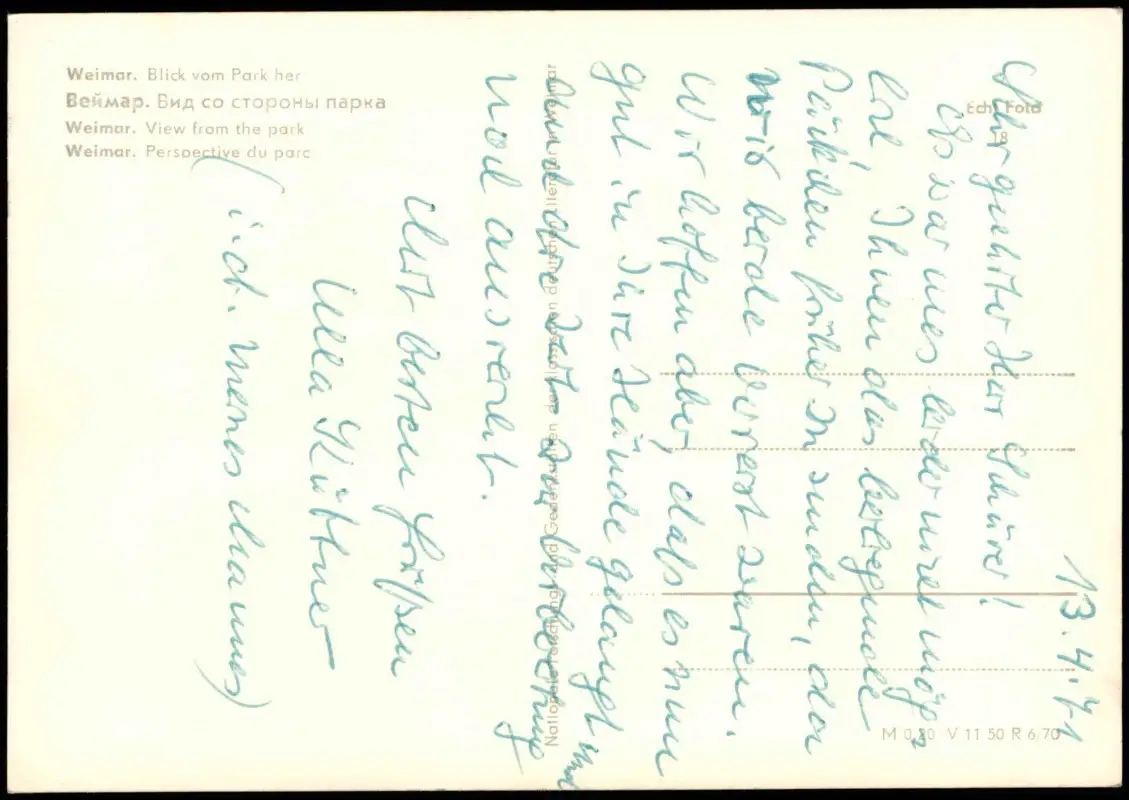 Weimar. Blick vom Park her
Веймар. Вид со стороны парка
Weimar. View from the park
Weimar. Perspective du parc
Echt Foto
Nationale Forschungs- und Gedenkstätten der klassischen deutschen Literatur in Weimar
M 0,20 V 11 50 R 6/70
13.4.71
Sehr geehrter Herr
Es war uns leider nicht mög-
lich, Ihnen das beiliegende
Päckchen früher zu senden, da
wir beide verreist waren.
Wir hoffen aber, daß es nun
gut in Ihre Hände gelangt
und die Zeit zur
noch ausreicht.
Mit besten Grüßen
Ulla
(i. d. meines Mannes)